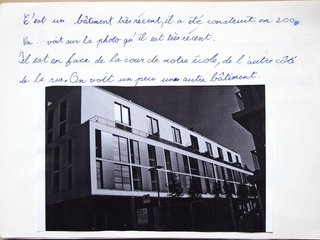 C'est un bâtiment très récent, il a été construit en 200
On voit sur la photo qu'il est très récent.
Il est en face de la cour de notre école, de l'autre côté
de la rue. On voit un peu une autre bâtiment.